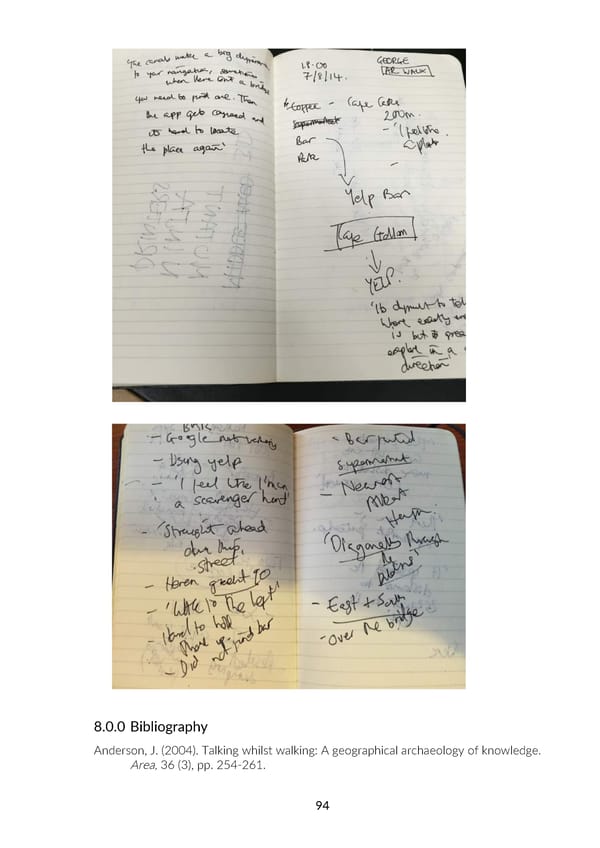 The canals make a big difference
to your navigation, sometimes
when there isn't a bridge
you need to find one. Then
the app gets confused and
its hard to locate
the place again'
18.00
7/8/14.
GEORGE
AR WALK
COFFEE - Cafe
200m.
Supermarket
- 'I feel like
Bar
Yelp Bar
Cafe Gollem
YELP.
where exactly
is but to
explore in a
direction'
- Google not working
- Using yelp
- 'I feel like I'm on
a scavenger hunt'
- 'Straight ahead
down this
street'
- 'Walk to the left'
- Hard to hold
phone up - find bar
- Did not find bar
- Bar
supermarket
- Nearest
Albert
Heijn
'Diagonally through
the
buildings'
- East + South
- over the bridge
8.0.0 Bibliography
Anderson, J. (2004). Talking whilst walking: A geographical archaeology of knowledge.
Area, 36 (3), pp. 254-261.
94